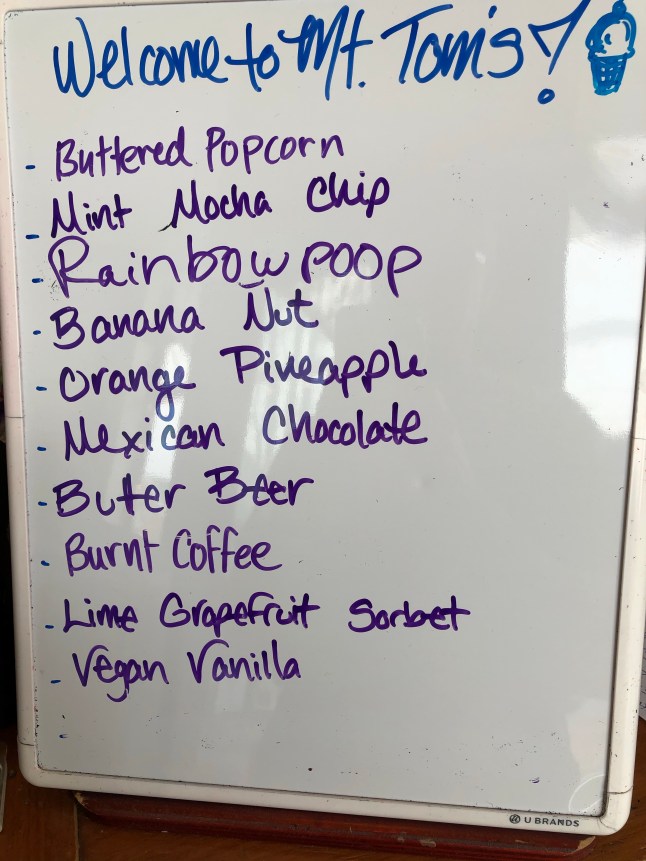 Welcome to Mt. Tom's!
- Buttered Popcorn
- Mint Mocha Chip
- Rainbow poop
- Banana Nut
- Orange Pineapple
- Mexican Chocolate
- Buter Beer
- Burnt Coffee
- Lime Grapefruit Sorbet
- Vegan Vanilla
-
U BRANDS